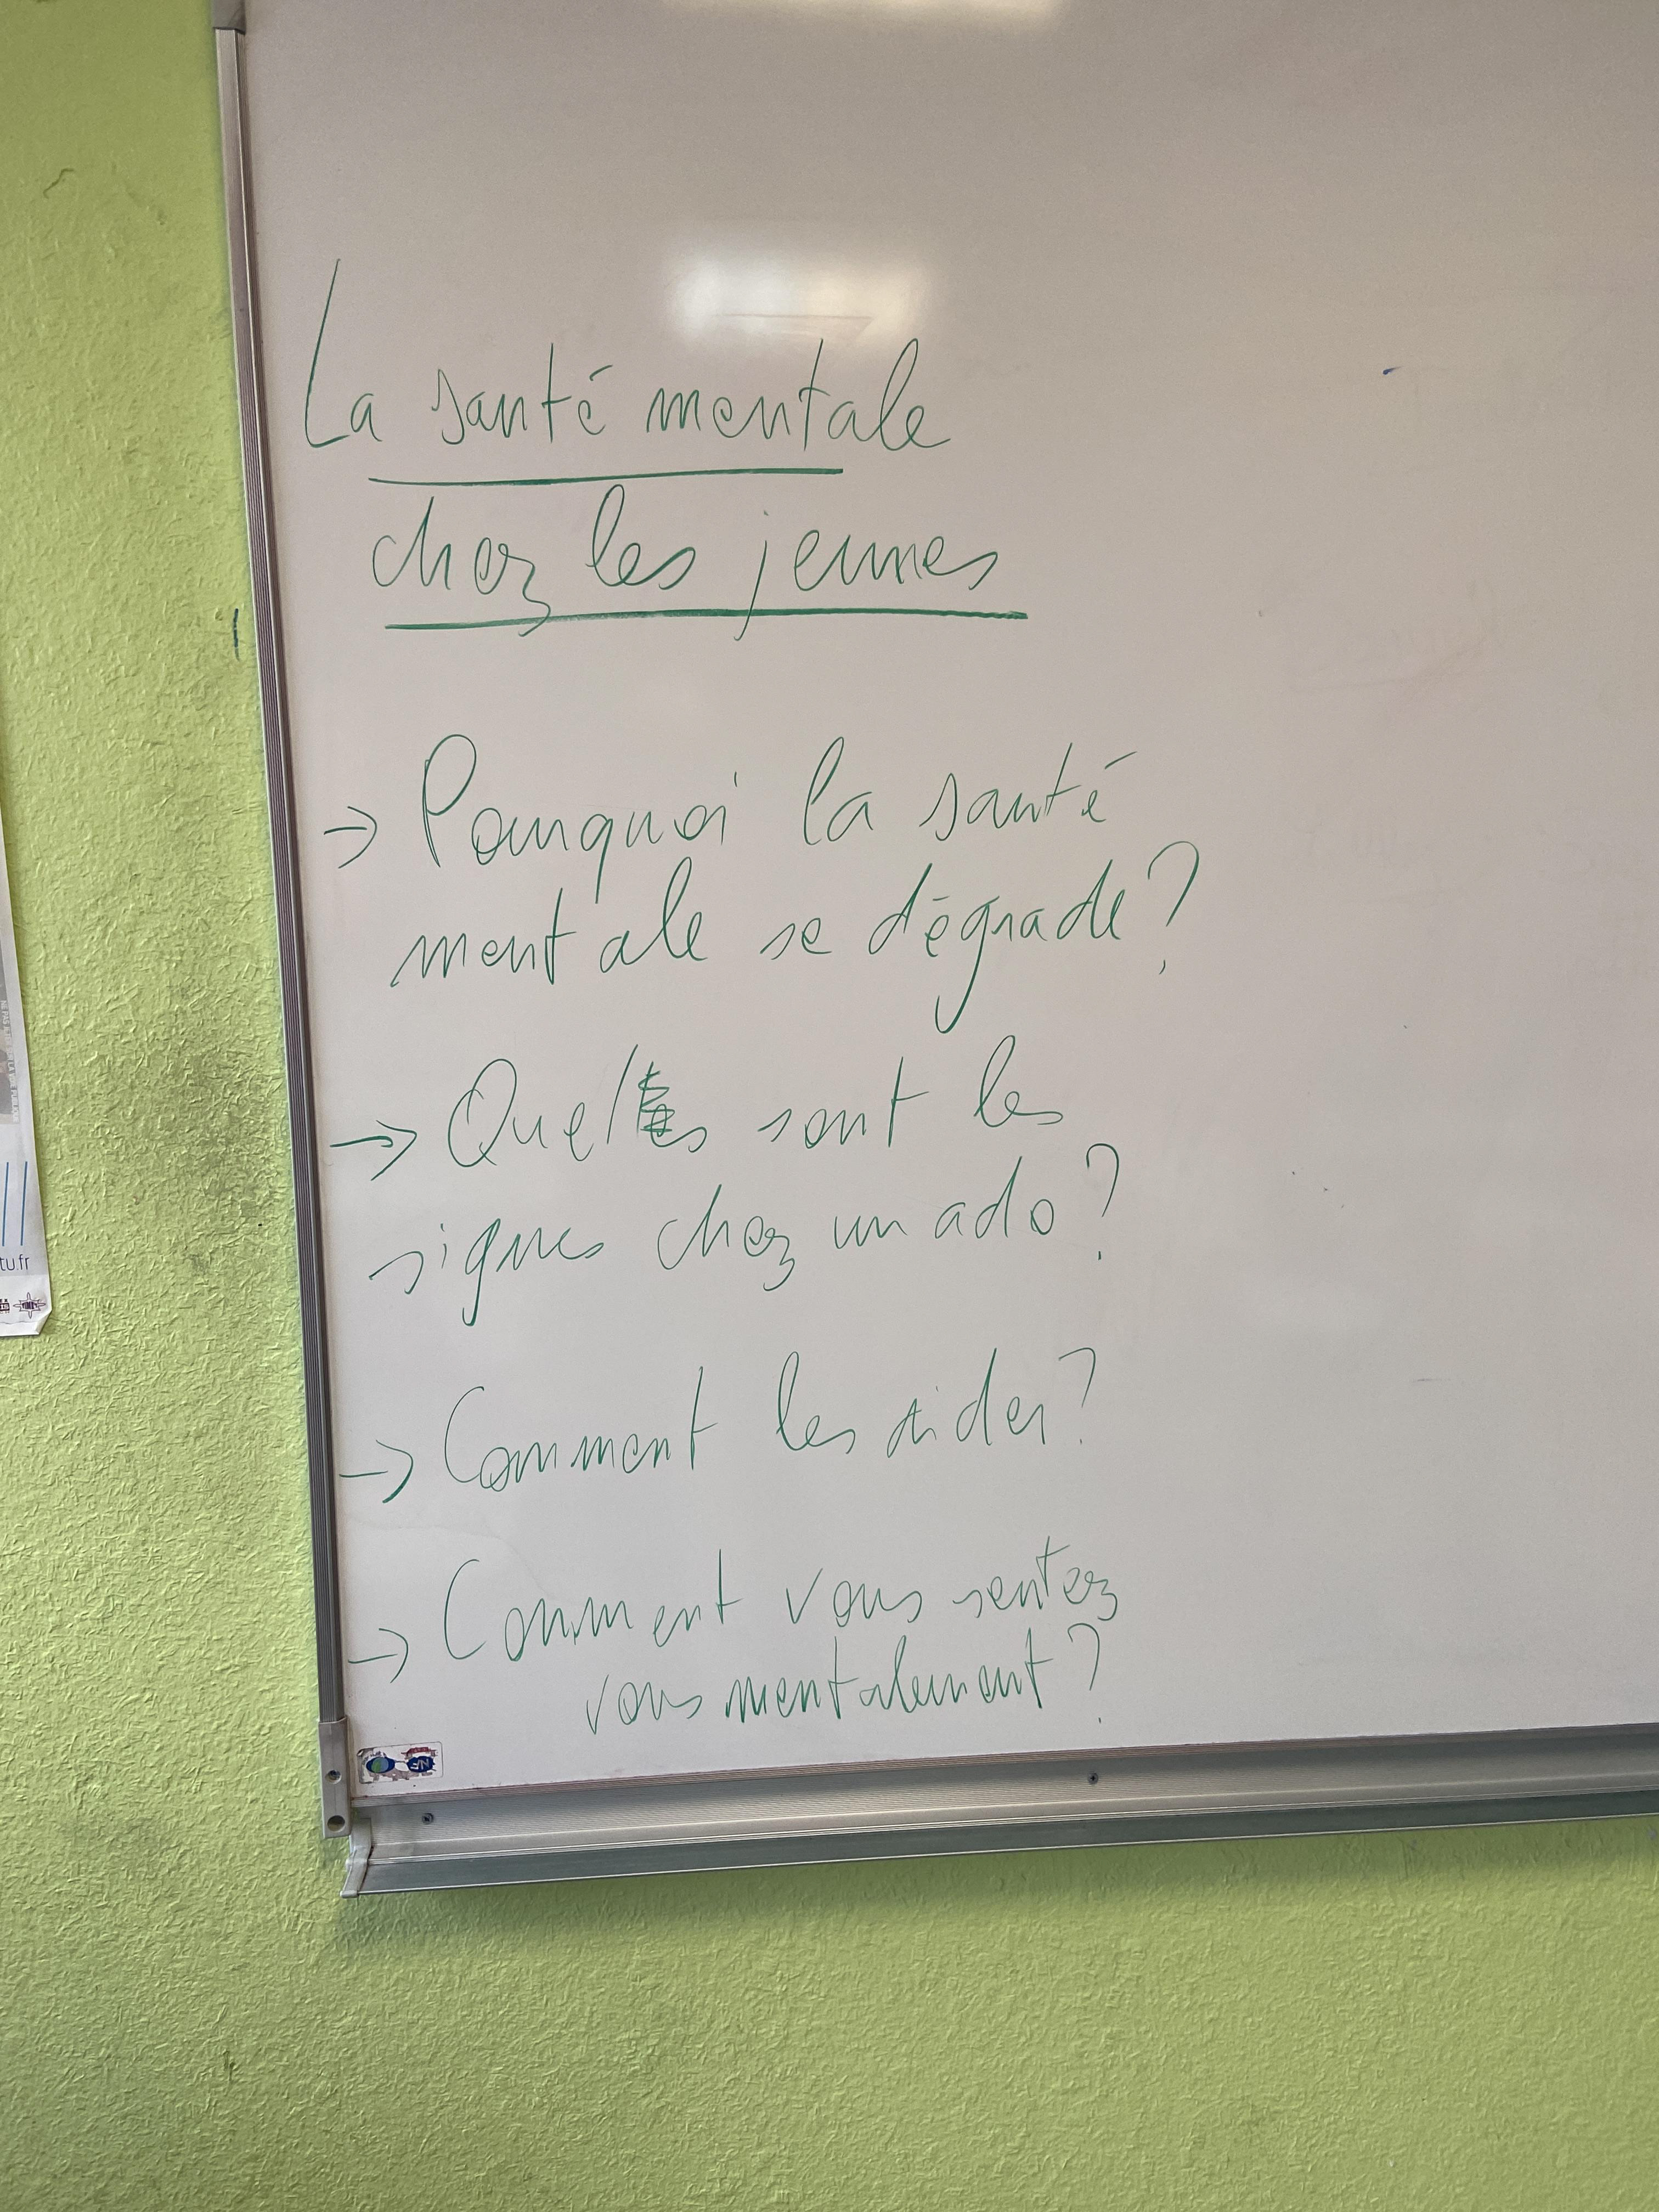 La santé mentale
chez les jeunes
→ Pourquoi la santé
mentale se dégrade ?
→ Quels sont les
signes chez un ado ?
→ Comment les aider ?
→ Comment vous sentez
vous mentalement ?
tu.fr
NF